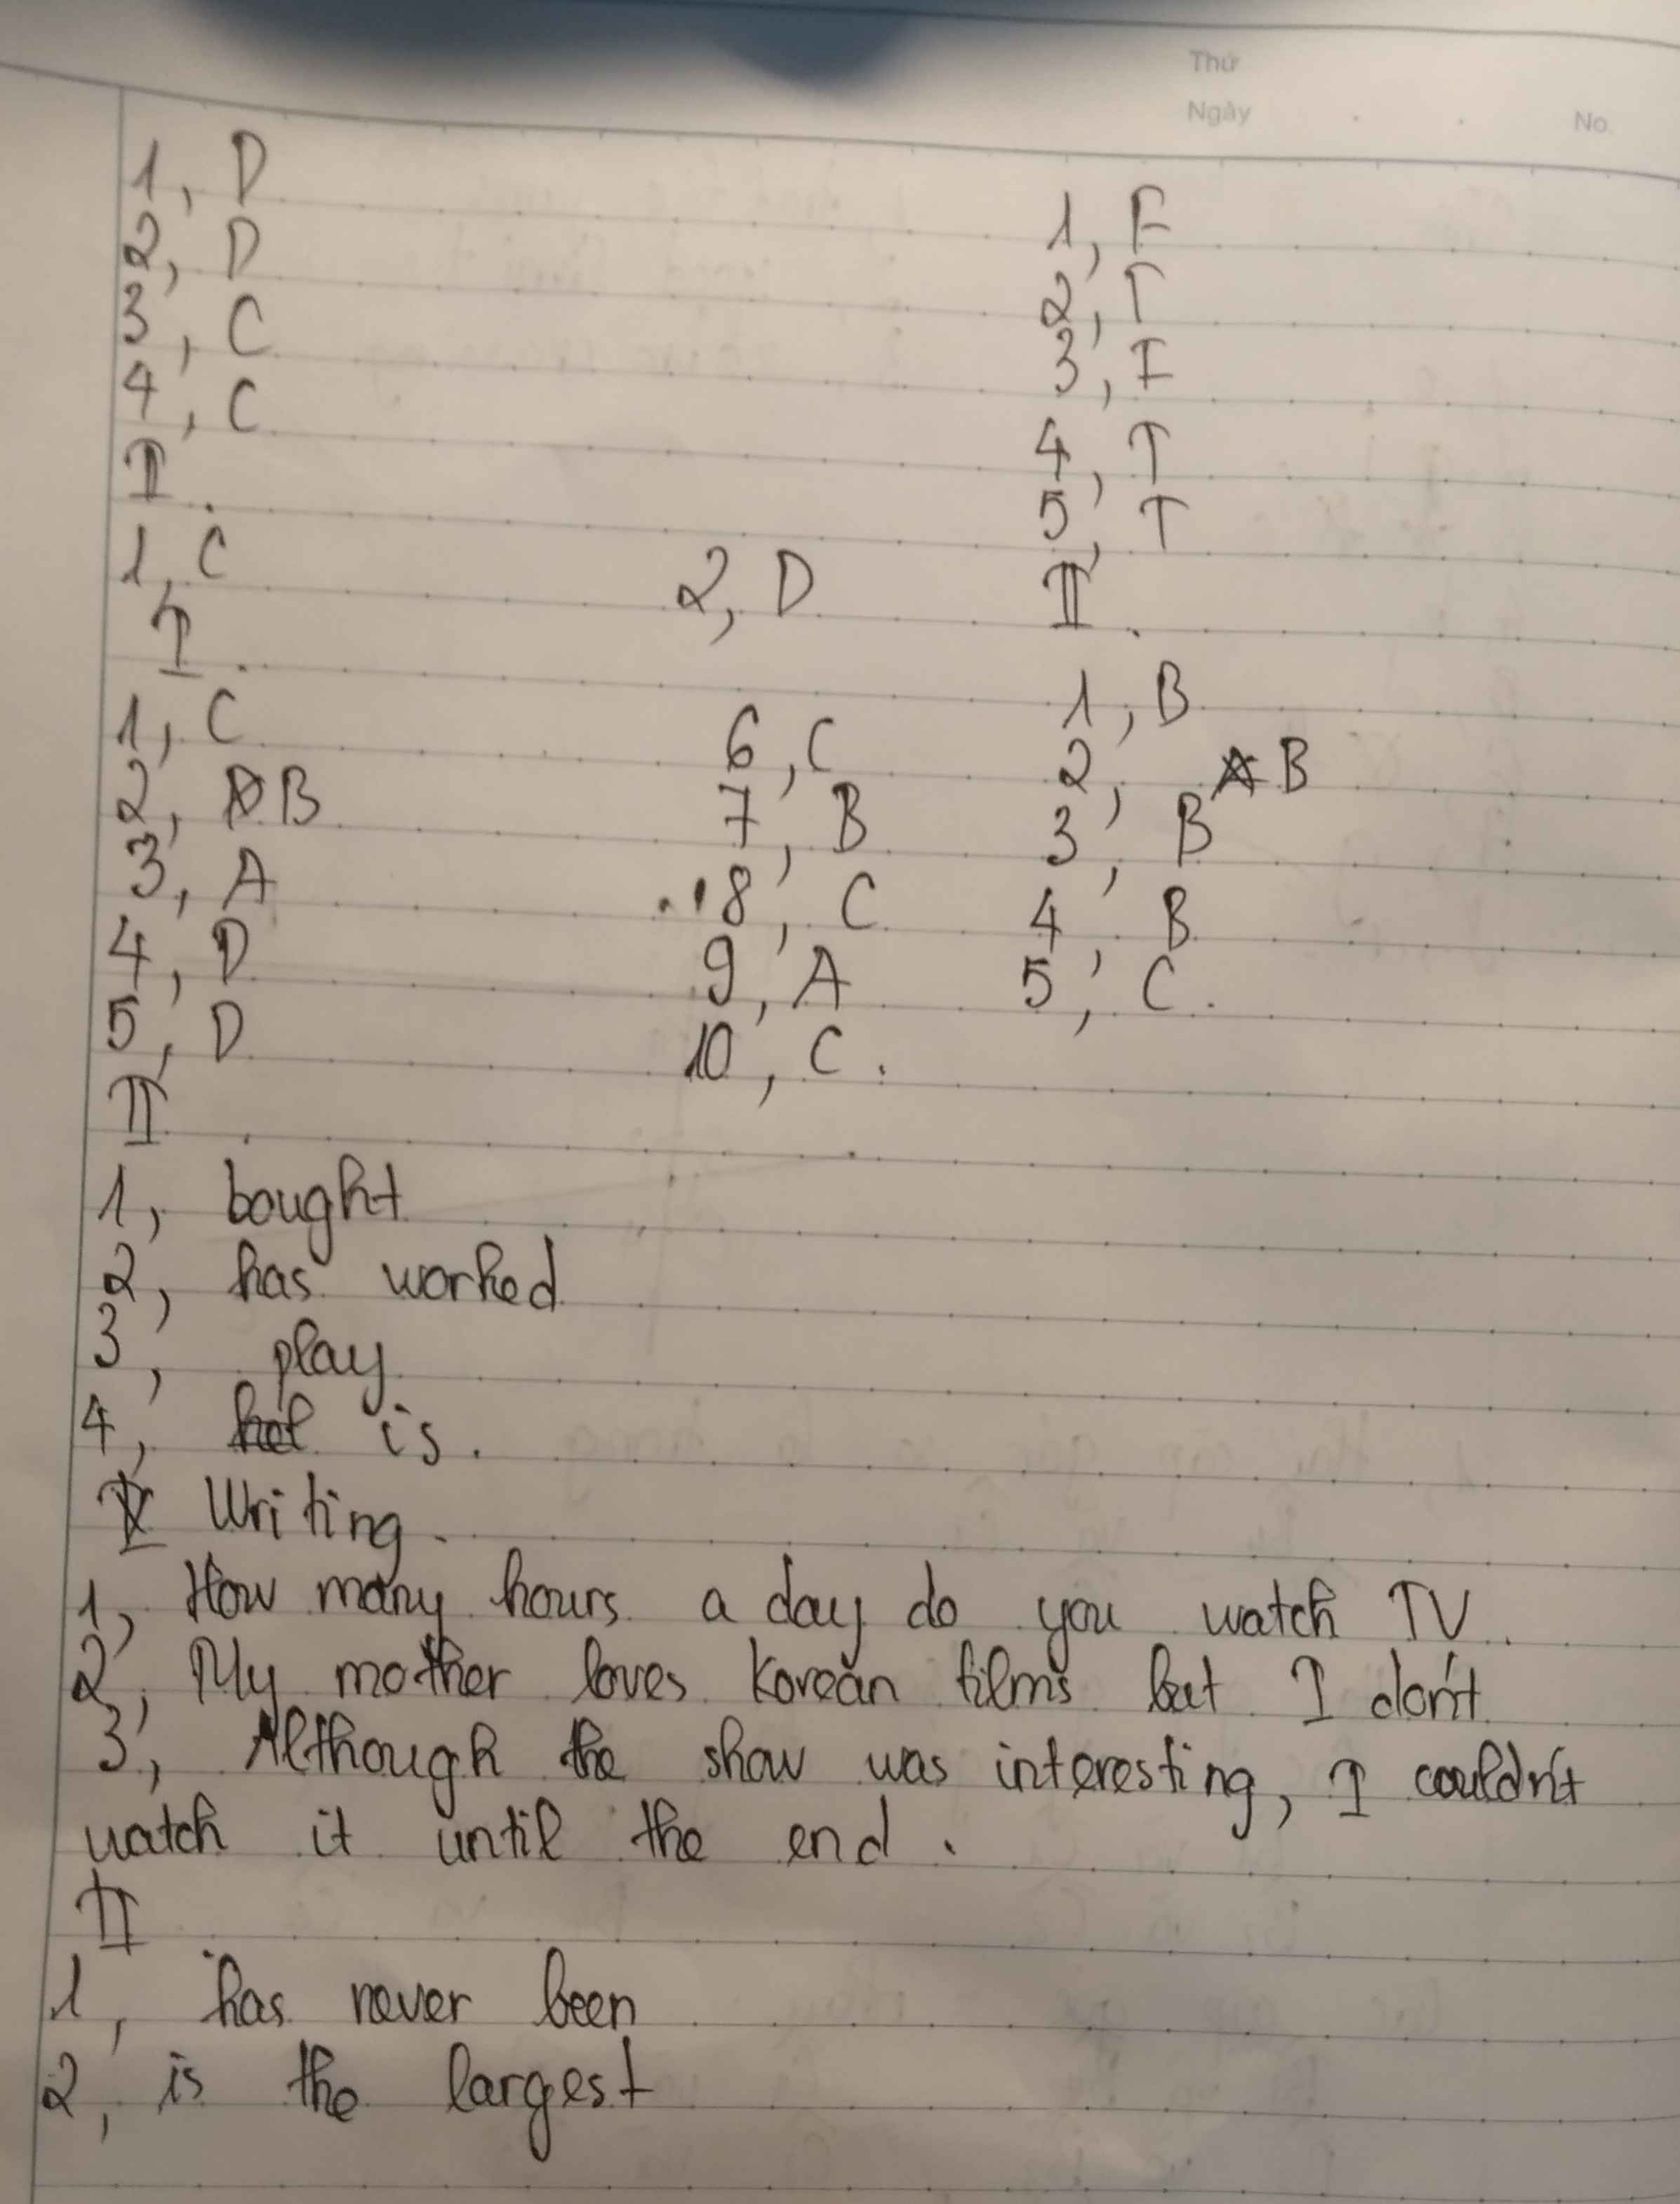 Thứ
Ngày
No.
1, D
2, D
3, C
4, C
I.
1, C 2, D
I.
1, C
2, B
3, A
4, D
5, D
6, C
7, B
8, C
9, A
10, C.
1, F
2, T
3, F
4, T
5, T
II.
1, B
2, B
3, B
4, B
5, C.
II.
1, bought
2, has worked
3, play
4, is.
Writing.
1, How many hours a day do you watch TV.
2, My mother loves Korean films but I don't
3, Although the show was interesting, I couldn't
watch it until the end.
II
1, has never been
2, is the largest